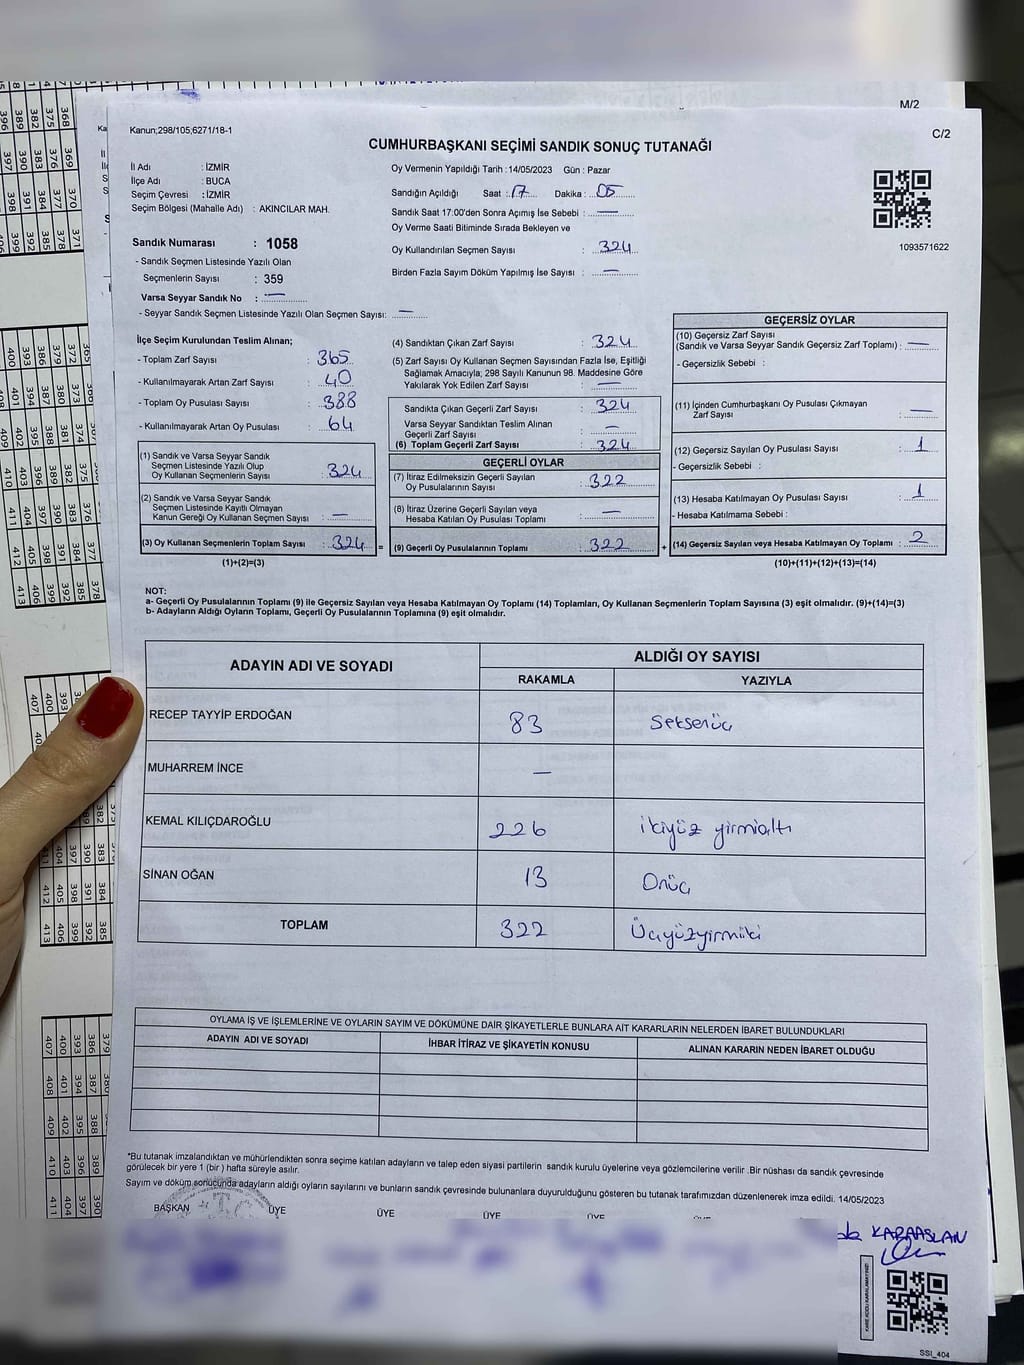 M/2
Kanun;298/105;6271/18-1
C/2
CUMHURBAŞKANI SEÇİMİ SANDIK SONUÇ TUTANAĞI
İl Adı : İZMİR
İlçe Adı : BUCA
Seçim Çevresi : İZMİR
Seçim Bölgesi (Mahalle Adı) : AKINCILAR MAH.
Oy Vermenin Yapıldığı Tarih :14/05/2023 Gün : Pazar
Sandığın Açıldığı Saat : 17 Dakika : 05
Sandık Saat 17:00'den Sonra Açımış İse Sebebi : —
Oy Verme Saati Bitiminde Sırada Bekleyen ve
Oy Kullandırılan Seçmen Sayısı : 324
Birden Fazla Sayım Döküm Yapılmış İse Sayısı : —
1093571622
Sandık Numarası : 1058
- Sandık Seçmen Listesinde Yazılı Olan
Seçmenlerin Sayısı : 359
Varsa Seyyar Sandık No : —
- Seyyar Sandık Seçmen Listesinde Yazılı Olan Seçmen Sayısı: —
İlçe Seçim Kurulundan Teslim Alınan;
- Toplam Zarf Sayısı : 365
- Kullanılmayarak Artan Zarf Sayısı : 40
- Toplam Oy Pusulası Sayısı : 388
- Kullanılmayarak Artan Oy Pusulası : 64
(1) Sandık ve Varsa Seyyar Sandık
Seçmen Listesinde Yazılı Olup
Oy Kullanan Seçmenlerin Sayısı : 324
(2) Sandık ve Varsa Seyyar Sandık
Seçmen Listesinde Kayıtlı Olmayan
Kanun Gereği Oy Kullanan Seçmen Sayısı : —
(3) Oy Kullanan Seçmenlerin Toplam Sayısı : 324
(1)+(2)=(3)
=
(4) Sandıktan Çıkan Zarf Sayısı : 324
(5) Zarf Sayısı Oy Kullanan Seçmen Sayısından Fazla İse, Eşitliği
Sağlamak Amacıyla; 298 Sayılı Kanunun 98. Maddesine Göre
Yakılarak Yok Edilen Zarf Sayısı : —
Sandıkta Çıkan Geçerli Zarf Sayısı : 324
Varsa Seyyar Sandıktan Teslim Alınan
Geçerli Zarf Sayısı : —
(6) Toplam Geçerli Zarf Sayısı : 324
GEÇERLİ OYLAR
(7) İtiraz Edilmeksizin Geçerli Sayılan
Oy Pusulalarının Sayısı : 322
(8) İtiraz Üzerine Geçerli Sayılan veya
Hesaba Katılan Oy Pusulası Toplamı : —
(9) Geçerli Oy Pusulalarının Toplamı : 322
+
GEÇERSİZ OYLAR
(10) Geçersiz Zarf Sayısı
(Sandık ve Varsa Seyyar Sandık Geçersiz Zarf Toplamı) : —
- Geçersizlik Sebebi :
(11) İçinden Cumhurbaşkanı Oy Pusulası Çıkmayan
Zarf Sayısı : —
(12) Geçersiz Sayılan Oy Pusulası Sayısı : 1
- Geçersizlik Sebebi :
(13) Hesaba Katılmayan Oy Pusulası Sayısı : 1
- Hesaba Katılmama Sebebi :
(14) Geçersiz Sayılan veya Hesaba Katılmayan Oy Toplamı : 2
(10)+(11)+(12)+(13)=(14)
NOT:
a- Geçerli Oy Pusulalarının Toplamı (9) ile Geçersiz Sayılan veya Hesaba Katılmayan Oy Toplamı (14) Toplamları, Oy Kullanan Seçmenlerin Toplam Sayısına (3) eşit olmalıdır. (9)+(14)=(3)
b- Adayların Aldığı Oyların Toplamı, Geçerli Oy Pusulalarının Toplamına (9) eşit olmalıdır.
ADAYIN ADI VE SOYADI ALDIĞI OY SAYISI
RAKAMLA YAZIYLA
RECEP TAYYİP ERDOĞAN 83 seksenüç
MUHARREM İNCE —
KEMAL KILIÇDAROĞLU 226 ikiyüz yirmialtı
SİNAN OĞAN 13 Onüç
TOPLAM 322 Üçyüzyirmiiki
OYLAMA İŞ VE İŞLEMLERİNE VE OYLARIN SAYIM VE DÖKÜMÜNE DAİR ŞİKAYETLERLE BUNLARA AİT KARARLARIN NELERDEN İBARET BULUNDUKLARI
ADAYIN ADI VE SOYADI İHBAR İTİRAZ VE ŞİKAYETİN KONUSU ALINAN KARARIN NEDEN İBARET OLDUĞU
*Bu tutanak imzalandıktan ve mühürlendikten sonra seçime katılan adayların ve talep eden siyasi partilerin sandık kurulu üyelerine veya gözlemcilerine verilir .Bir nüshası da sandık çevresinde
görülecek bir yere 1 (bir ) hafta süreyle asılır.
Sayım ve döküm sonucunda adayların aldığı oyların sayılarını ve bunların sandık çevresinde bulunanlara duyurulduğunu gösteren bu tutanak tarafımızdan düzenlenerek imza edildi. 14/05/2023
BAŞKAN ÜYE ÜYE ÜYE ÜYE ÜYE
KARAASLAN
SSI_404